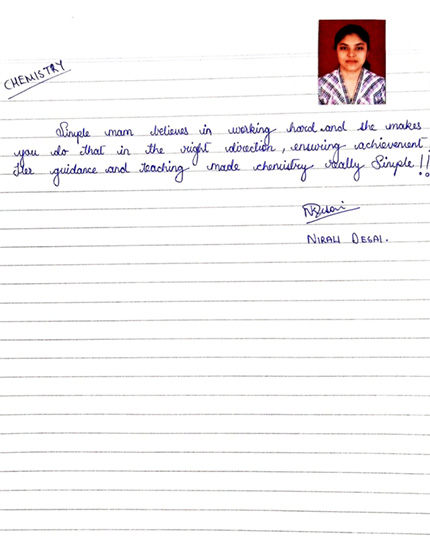 CHEMISTRY
Simple mam believes in working hard and she makes
you do that in the right direction, ensuring achievement.
Her guidance and teaching made chemistry really Simple!!
NDesai
NIRALI DESAI.